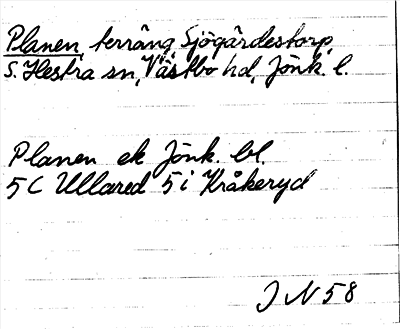 Planen, terräng, Sjögårdestorp,
S. Hestra sn, Västbo hd, Jönk. l.
Planen ek Jönk. bl.
5C Ullared 5i Kråkeryd
J N 58